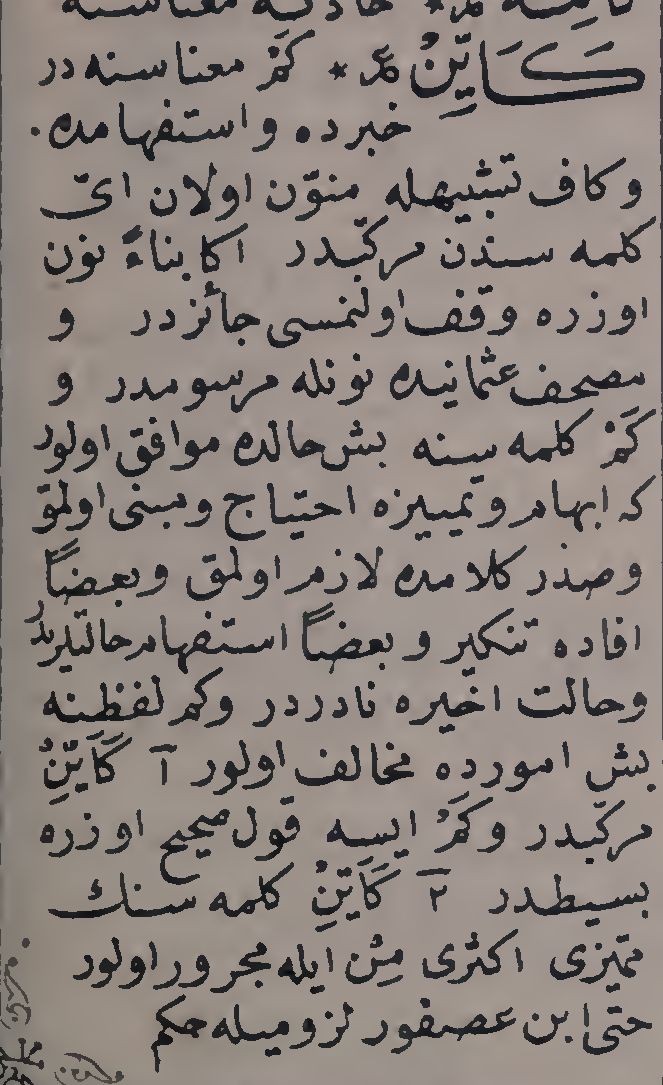 كَاَيِّنْ عر * كَمْ معناسنه در
خبرده واستفهامده.
وكاف تشبيهله منوّن اولان اىّ
كلمه سندن مركّبدر اكا بناءً نون
اوزره وقف اولنمسى جائزدر و
مصحف عثمانيده نونله مرسومدر و
كَمْ كلمه سنه بش حالده موافق اولور
كه ابهام وتمييزه احتياج ومبنى اولمق
وصدر كلامده لازم اولمق وبعضاً
افاده تنكير وبعضاً استفهام حالتلريدر
وحالت اخيره نادردر وكم لفظنه
بش اموررده مخالف اولور ١ كَاَيِّنْ
مركّبدر وكَمْ ايسه قول صحيح اوزره
بسيطدر ٢ كَاَيِّنْ كلمه سنك
تميزى اكثرى مِنْ ايله مجرور اولور
حتى ابن عصفور لزوميله حكم